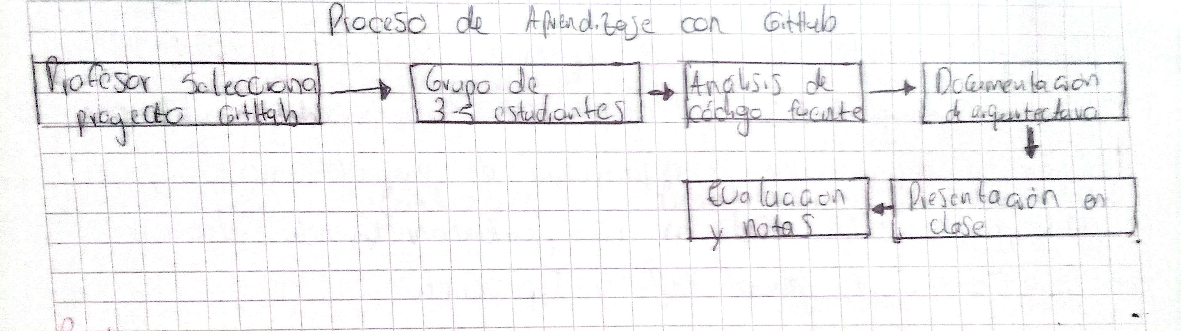 Proceso de Aprendizaje con GitHub
Profesor Selecciona
proyecto GitHub
Grupo de
3-5 estudiantes
Análisis de
código fuente
Documentación
de arquitectura
Presentación en
clase
Evaluacion
y notas